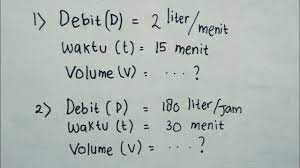 1) Debit (D) = 2 liter/menit
Waktu (t) = 15 menit
Volume (V) = ... ?
2) Debit (D) = 180 liter/jam
Waktu (t) = 30 menit
Volume (V) = ... ?